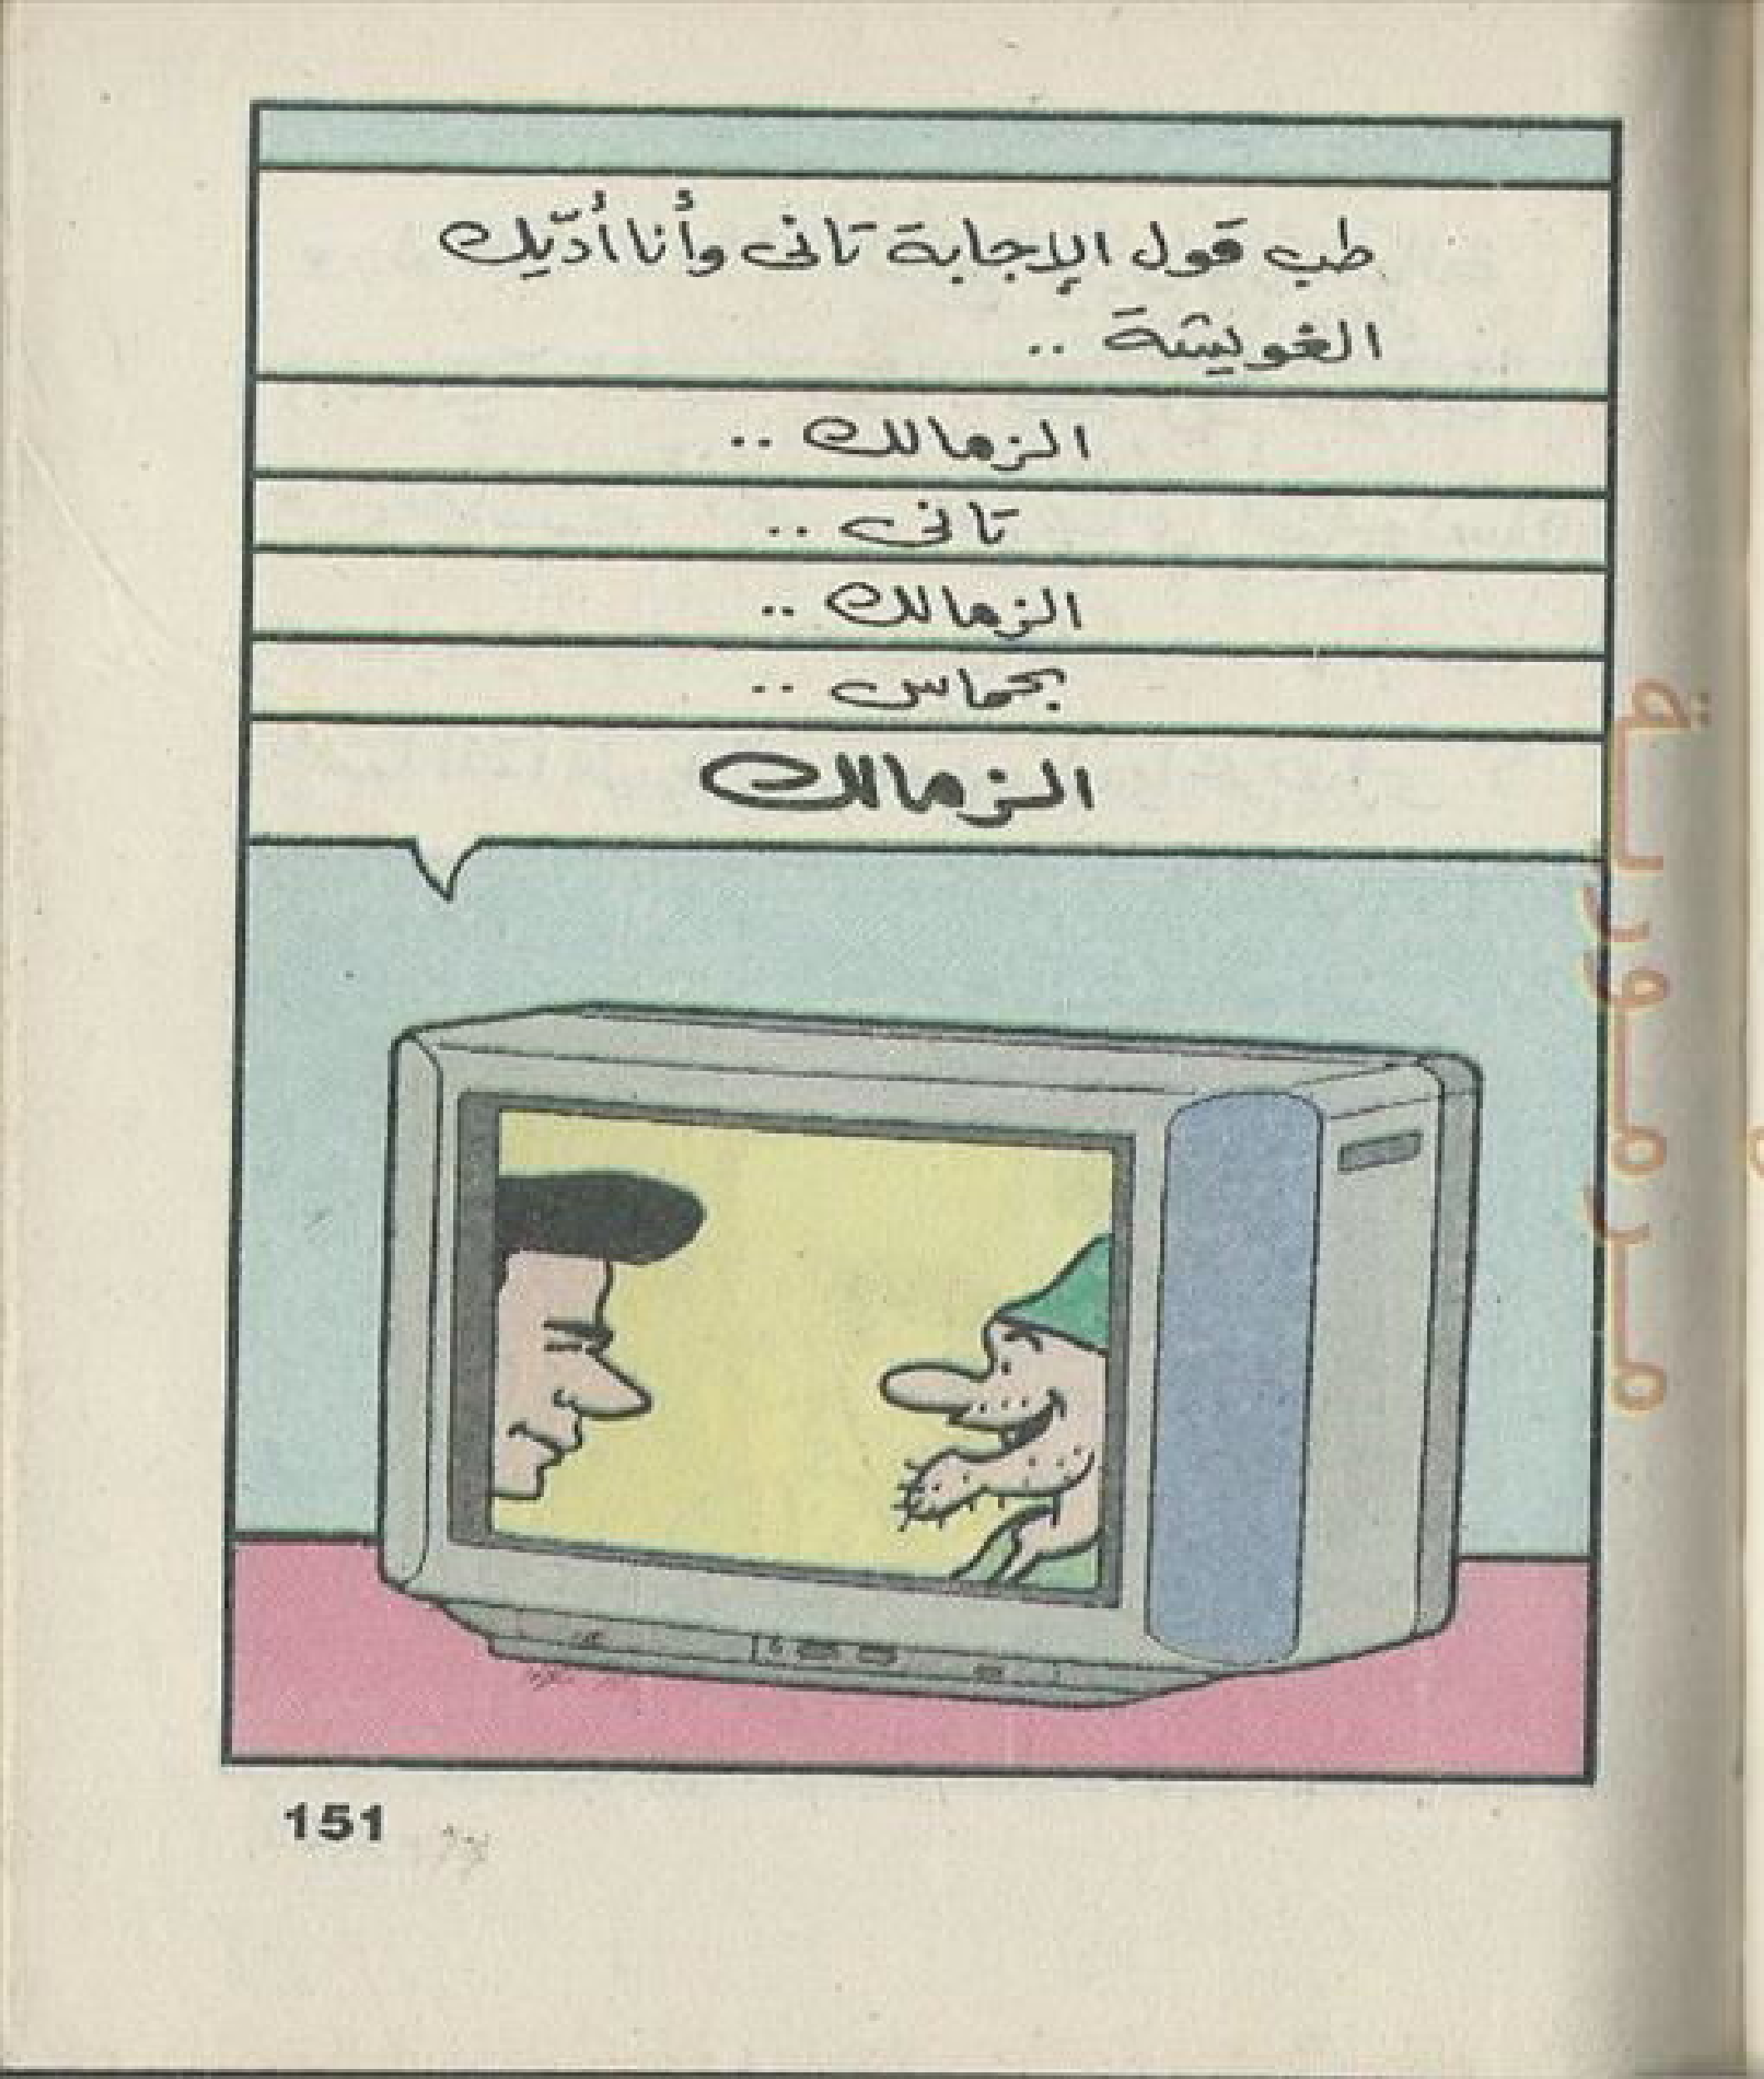 طب قول الإجابة تانى وأنا أُدّيلك
الغويشة ..
الزمالك ..
تانى ..
الزمالك ..
بحماس ..
الزمالك
مرمورية
151